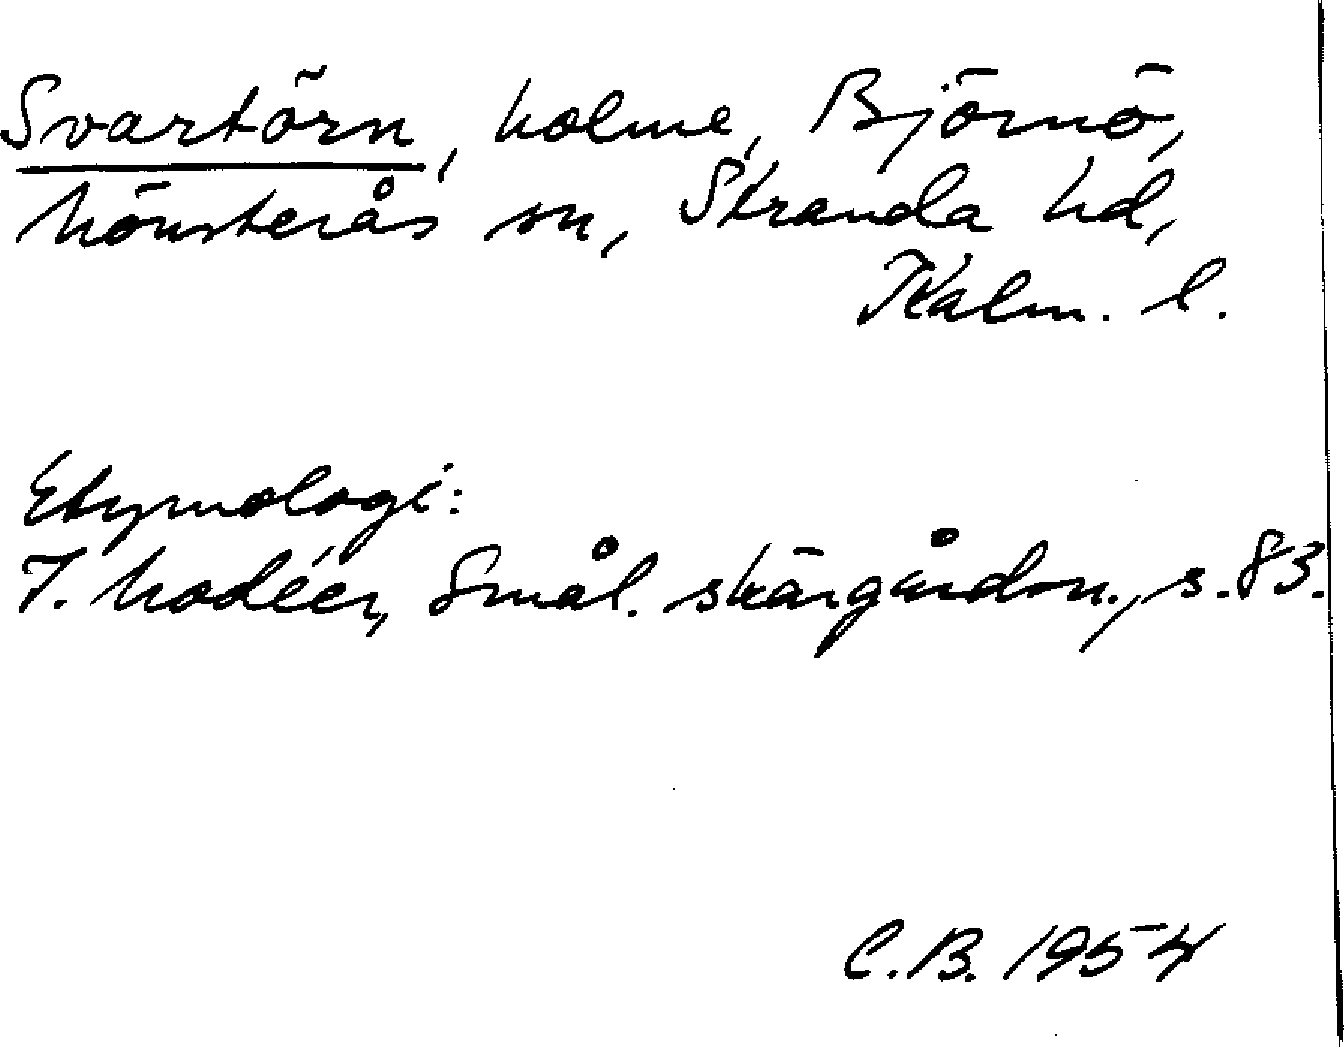 Svartörn, holme, Björnö,
Mönsterås sn, Stranda hd,
Kalm. l.
Etymologi:
I. Modéer, Smål. skärgårdsn., s. 83.
C.B. 1954